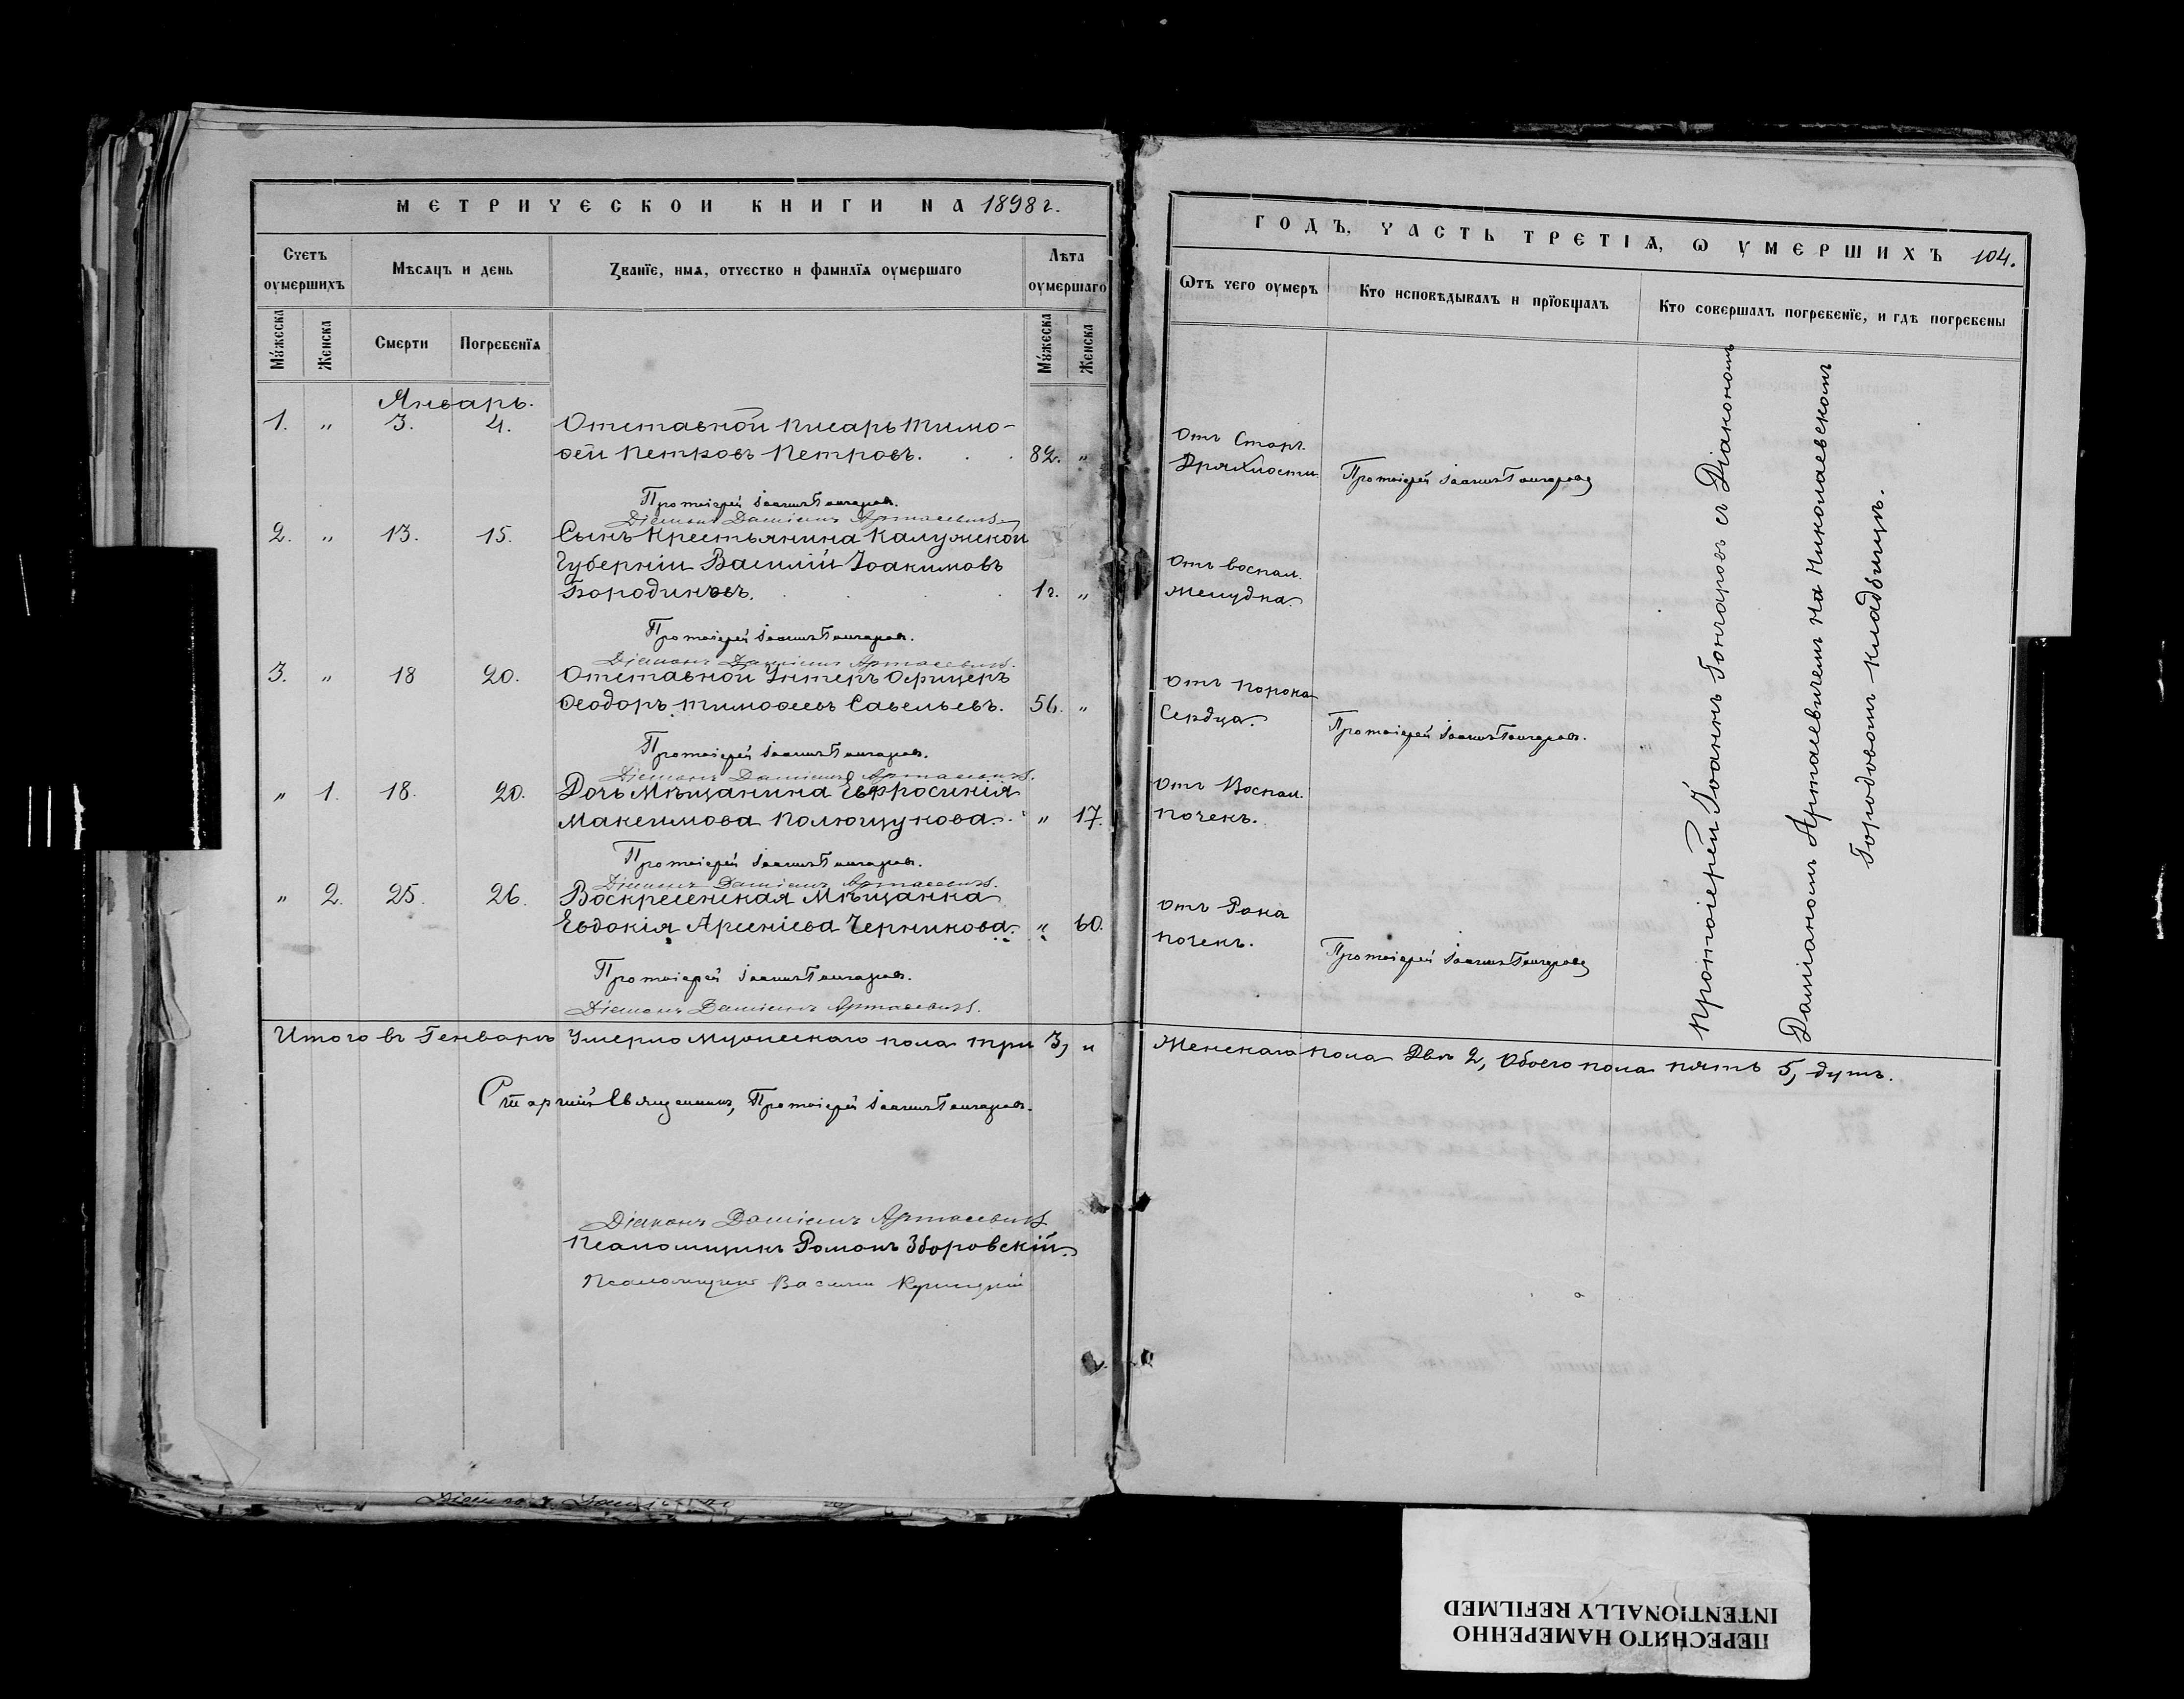 МЕТРИЧЕСКОЙ КНИГИ НА 1898 г.
Счетъ оумершихъ
Мѣсяцъ и день
Званїе, имя, отчество и фамилїя оумершаго
Лѣта оумершаго
Мꙋжеска
Женска
Смерти
Погребенїя
Мꙋжеска
Женска
Январь.
1. " 3. 4. Отставной писарь Тимо-
ѳей Петровъ Петровъ. 82. "
Протоіерей Іоаннъ Гончаровъ.
Діаконъ Даміанъ Артасевичъ.
2. " 13. 15. Сынъ крестьянина Калужской
Губерніи Василій Іоакимовъ
Бородинъ. 1 г. "
Протоіерей Іоаннъ Гончаровъ.
Діаконъ Даміанъ Артасевичъ.
3. " 18 20. Отставной Унтеръ Офицеръ
Ѳеодоръ Тимоѳеевъ Савельевъ. 56. "
Протоіерей Іоаннъ Гончаровъ.
Діаконъ Даміанъ Артасевичъ.
" 1. 18. 20. Дочь Мѣщанина Евфросинія
Максимова Полющукова. " 17.
Протоіерей Іоаннъ Гончаровъ.
Діаконъ Даміанъ Артасевичъ.
" 2. 25. 26. Воскресенская Мѣщанка
Евдокія Арсеніева Черникова. " 60.
Протоіерей Іоаннъ Гончаровъ.
Діаконъ Даміанъ Артасевичъ.
Итого въ Генварѣ Умерло Мужескаго пола три 3, и
Старшій Священникъ, Протоіерей Іоаннъ Гончаровъ.
Діаконъ Даміанъ Артасевичъ
Псаломщикъ Романъ Зборовскій.
Псаломщикъ Василій
ГОДЪ, ЧАСТЬ ТРЕТІЯ, Ѡ УМЕРШИХЪ 104.
Ѿтъ чего оумеръ
Кто исповѣдывалъ и прїобщалъ
Кто совершалъ погребенїе, и гдѣ погребены
Отъ Стар.
Дряхлости. Протоіерей Іоаннъ Гончаровъ
Отъ воспал.
желудка.
Отъ порока
Сердца. Протоіерей Іоаннъ Гончаровъ.
Отъ Воспал.
почекъ.
Отъ Рака
почекъ. Протоіерей Іоаннъ Гончаровъ
Протоіерей Іоаннъ Гончаровъ съ Діакономъ
Даміаномъ Артасевичемъ на Николаевскомъ
Городовомъ кладбищѣ.
Женскаго пола Двѣ 2, Обоего пола пять 5, душъ.
ПЕРЕСНЯТО НАМЕРЕННО
INTENTIONALLY REFILMED